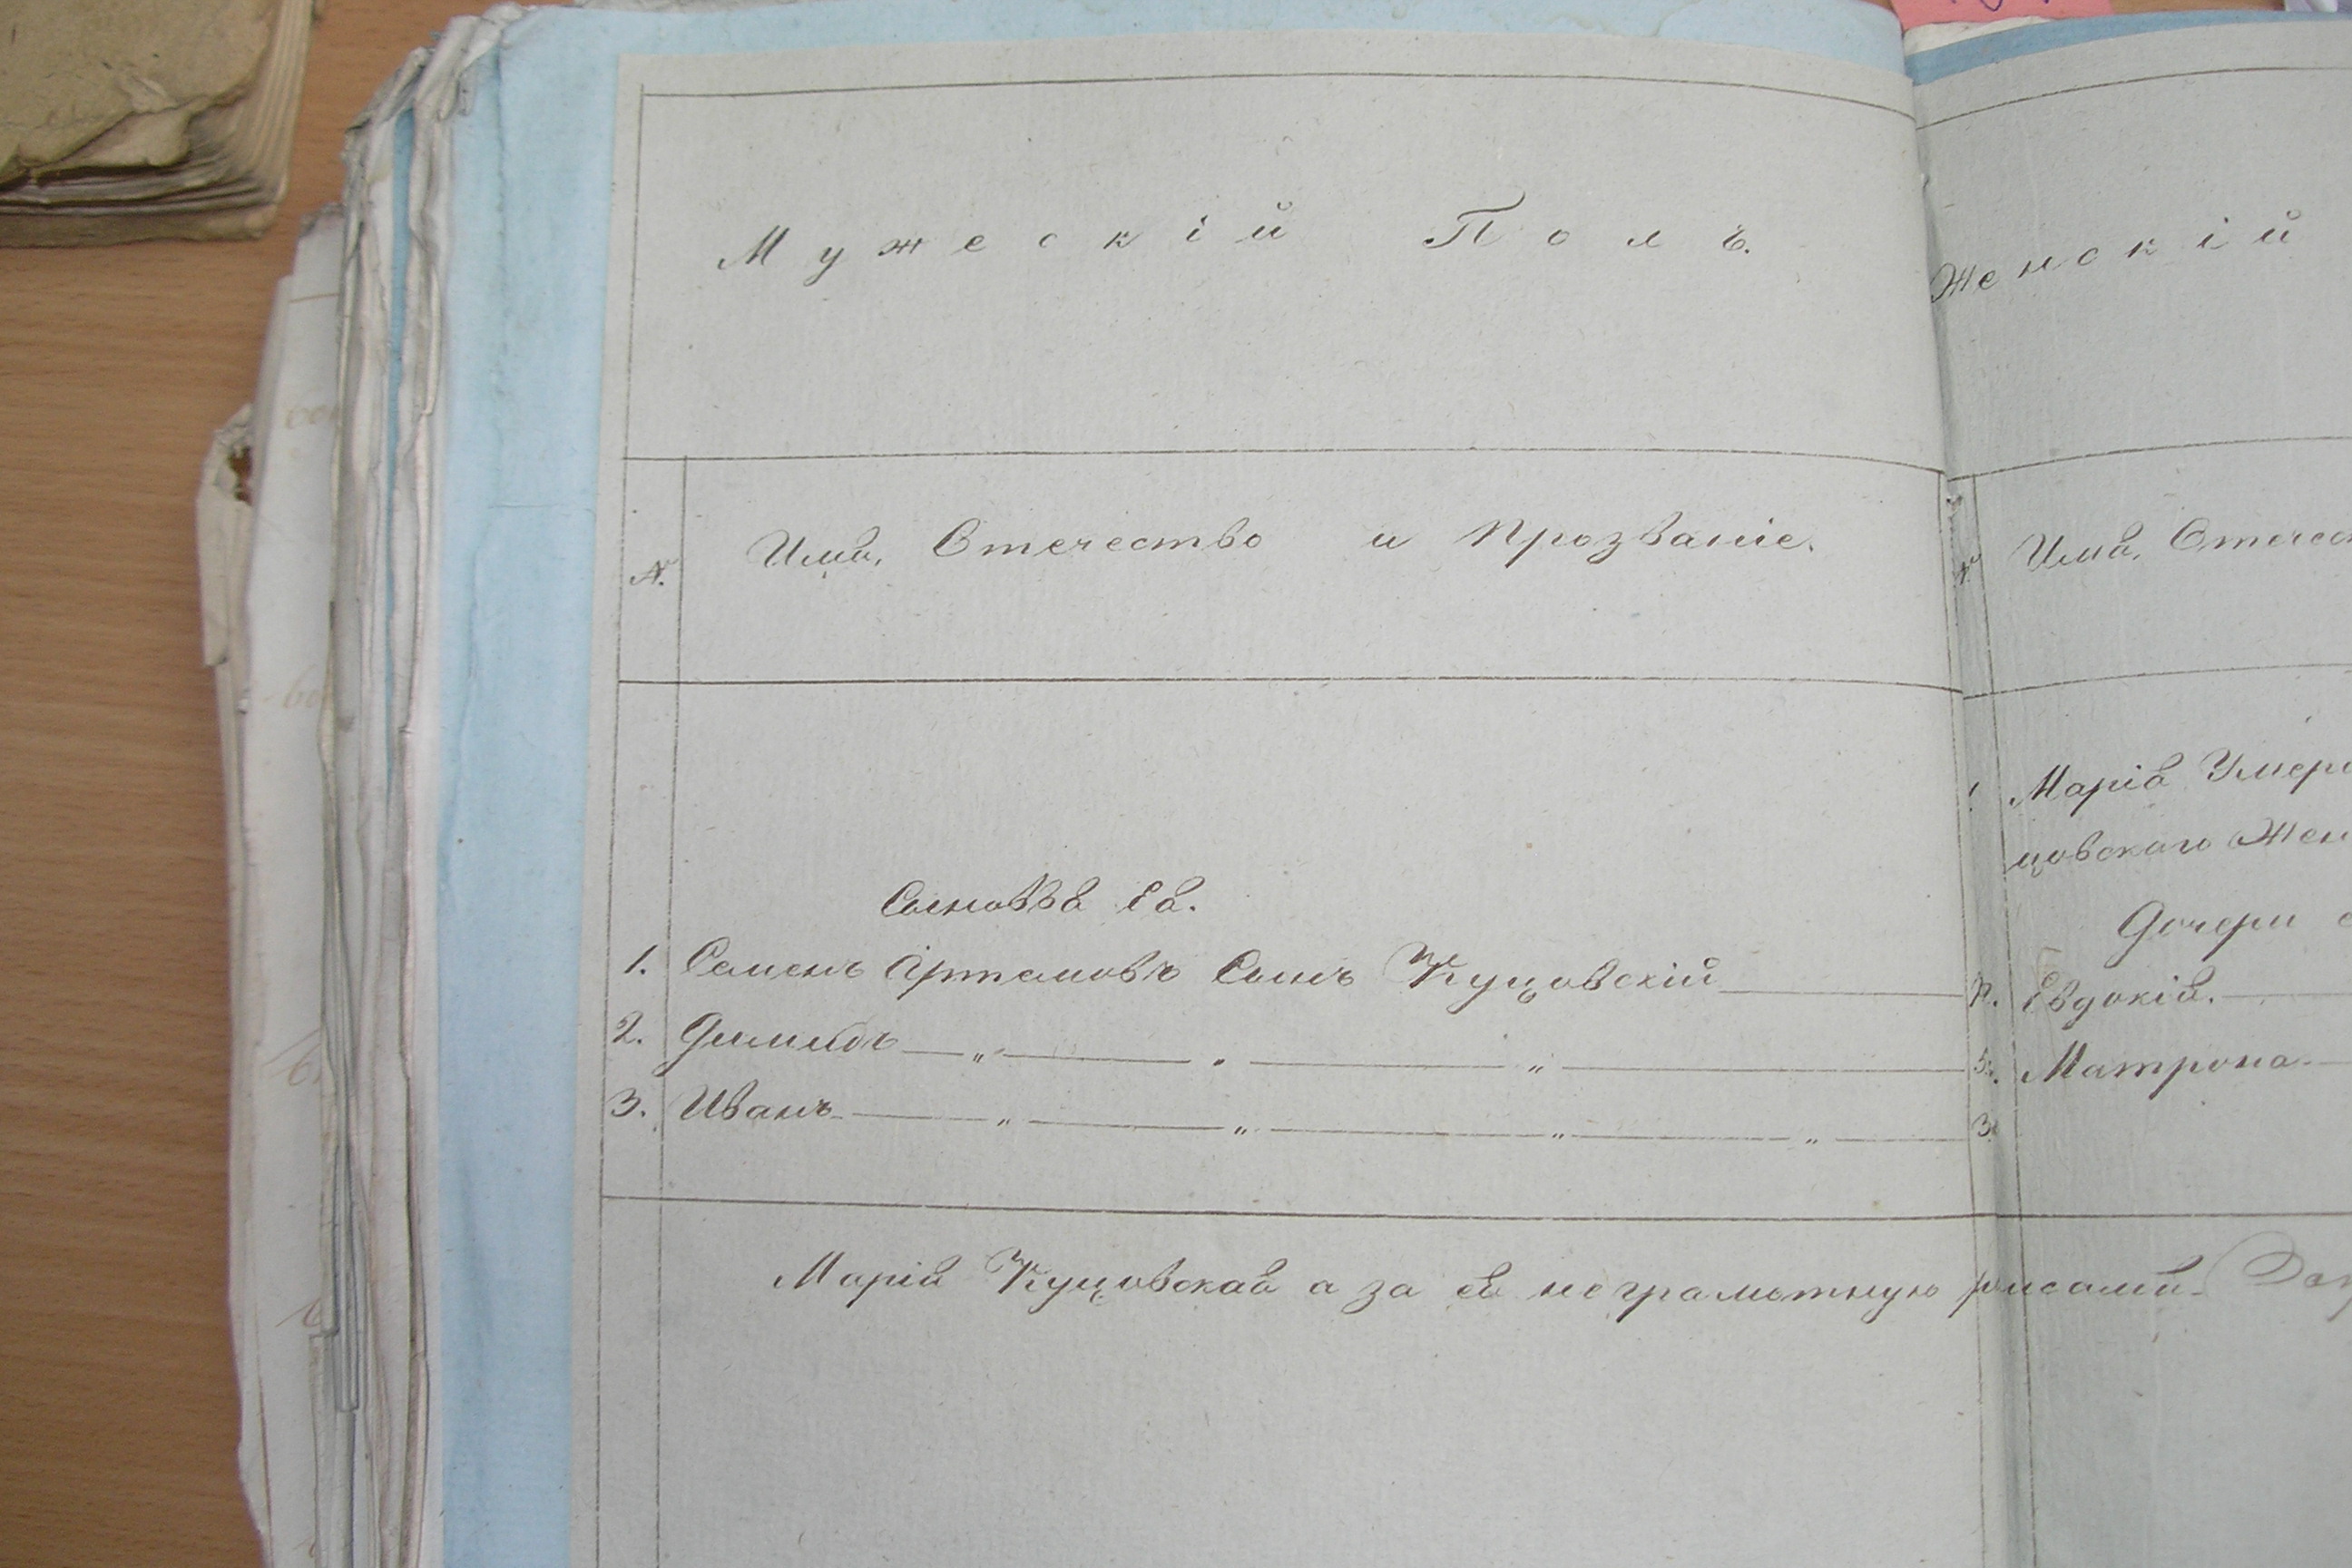 Мужескій Полъ.
№.
Имя, Отечество и Прозваніе.
Сыновья Ея.
1. Семенъ Артемовъ Сынъ Куцовскій
2. Димидъ — „ — „ — „ —
3. Иванъ — „ — „ — „ — „ —
Марія Куцовская а за ея неграмотную
Женскій
№
Имя, Отечест
1 Марія Умер
цовскаго Жен
Дочери
2. Евдокія.
Матрона
3.